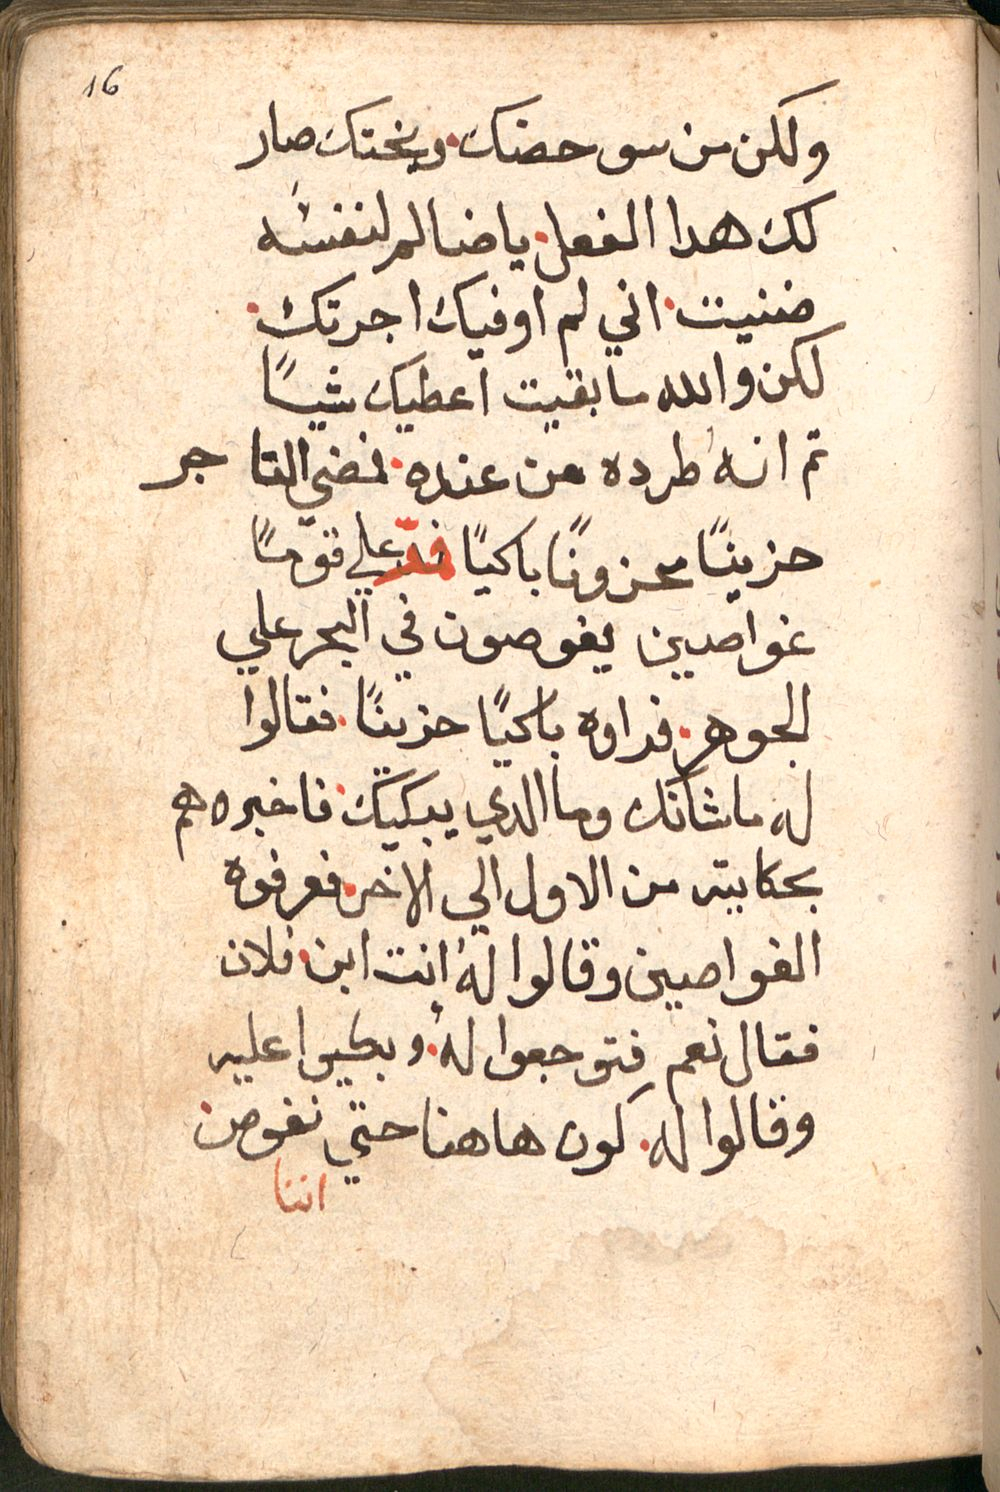 16
ولكن من سو حضك. وبختك صار
لك هدا الفعل. يا ضالم لنفسه
ضنيت. اني لم اوفيك اجرتك.
لكن والله ما بقيت اعطيك شياً
تم انهُ طرده من عنده. فمضي التاجر
حزيناً محزوناً باكياً فمرّ علي قوماً
غواصين يغوصون في البحر علي
الجوهر. فراوه باكياً حزيناً. فقالوا
له ما شانك وما الدي يبكيك. فاخبرهم
بحكايته من الاول الي الاخر. فعرفوه
الغواصين وقالوا لهُ انت ابن. فلان
فقال نعم فتوجعوا لهُ. وبكيوا عليه
وقالوا له. كون هاهنا حتي نغوص.
اننا